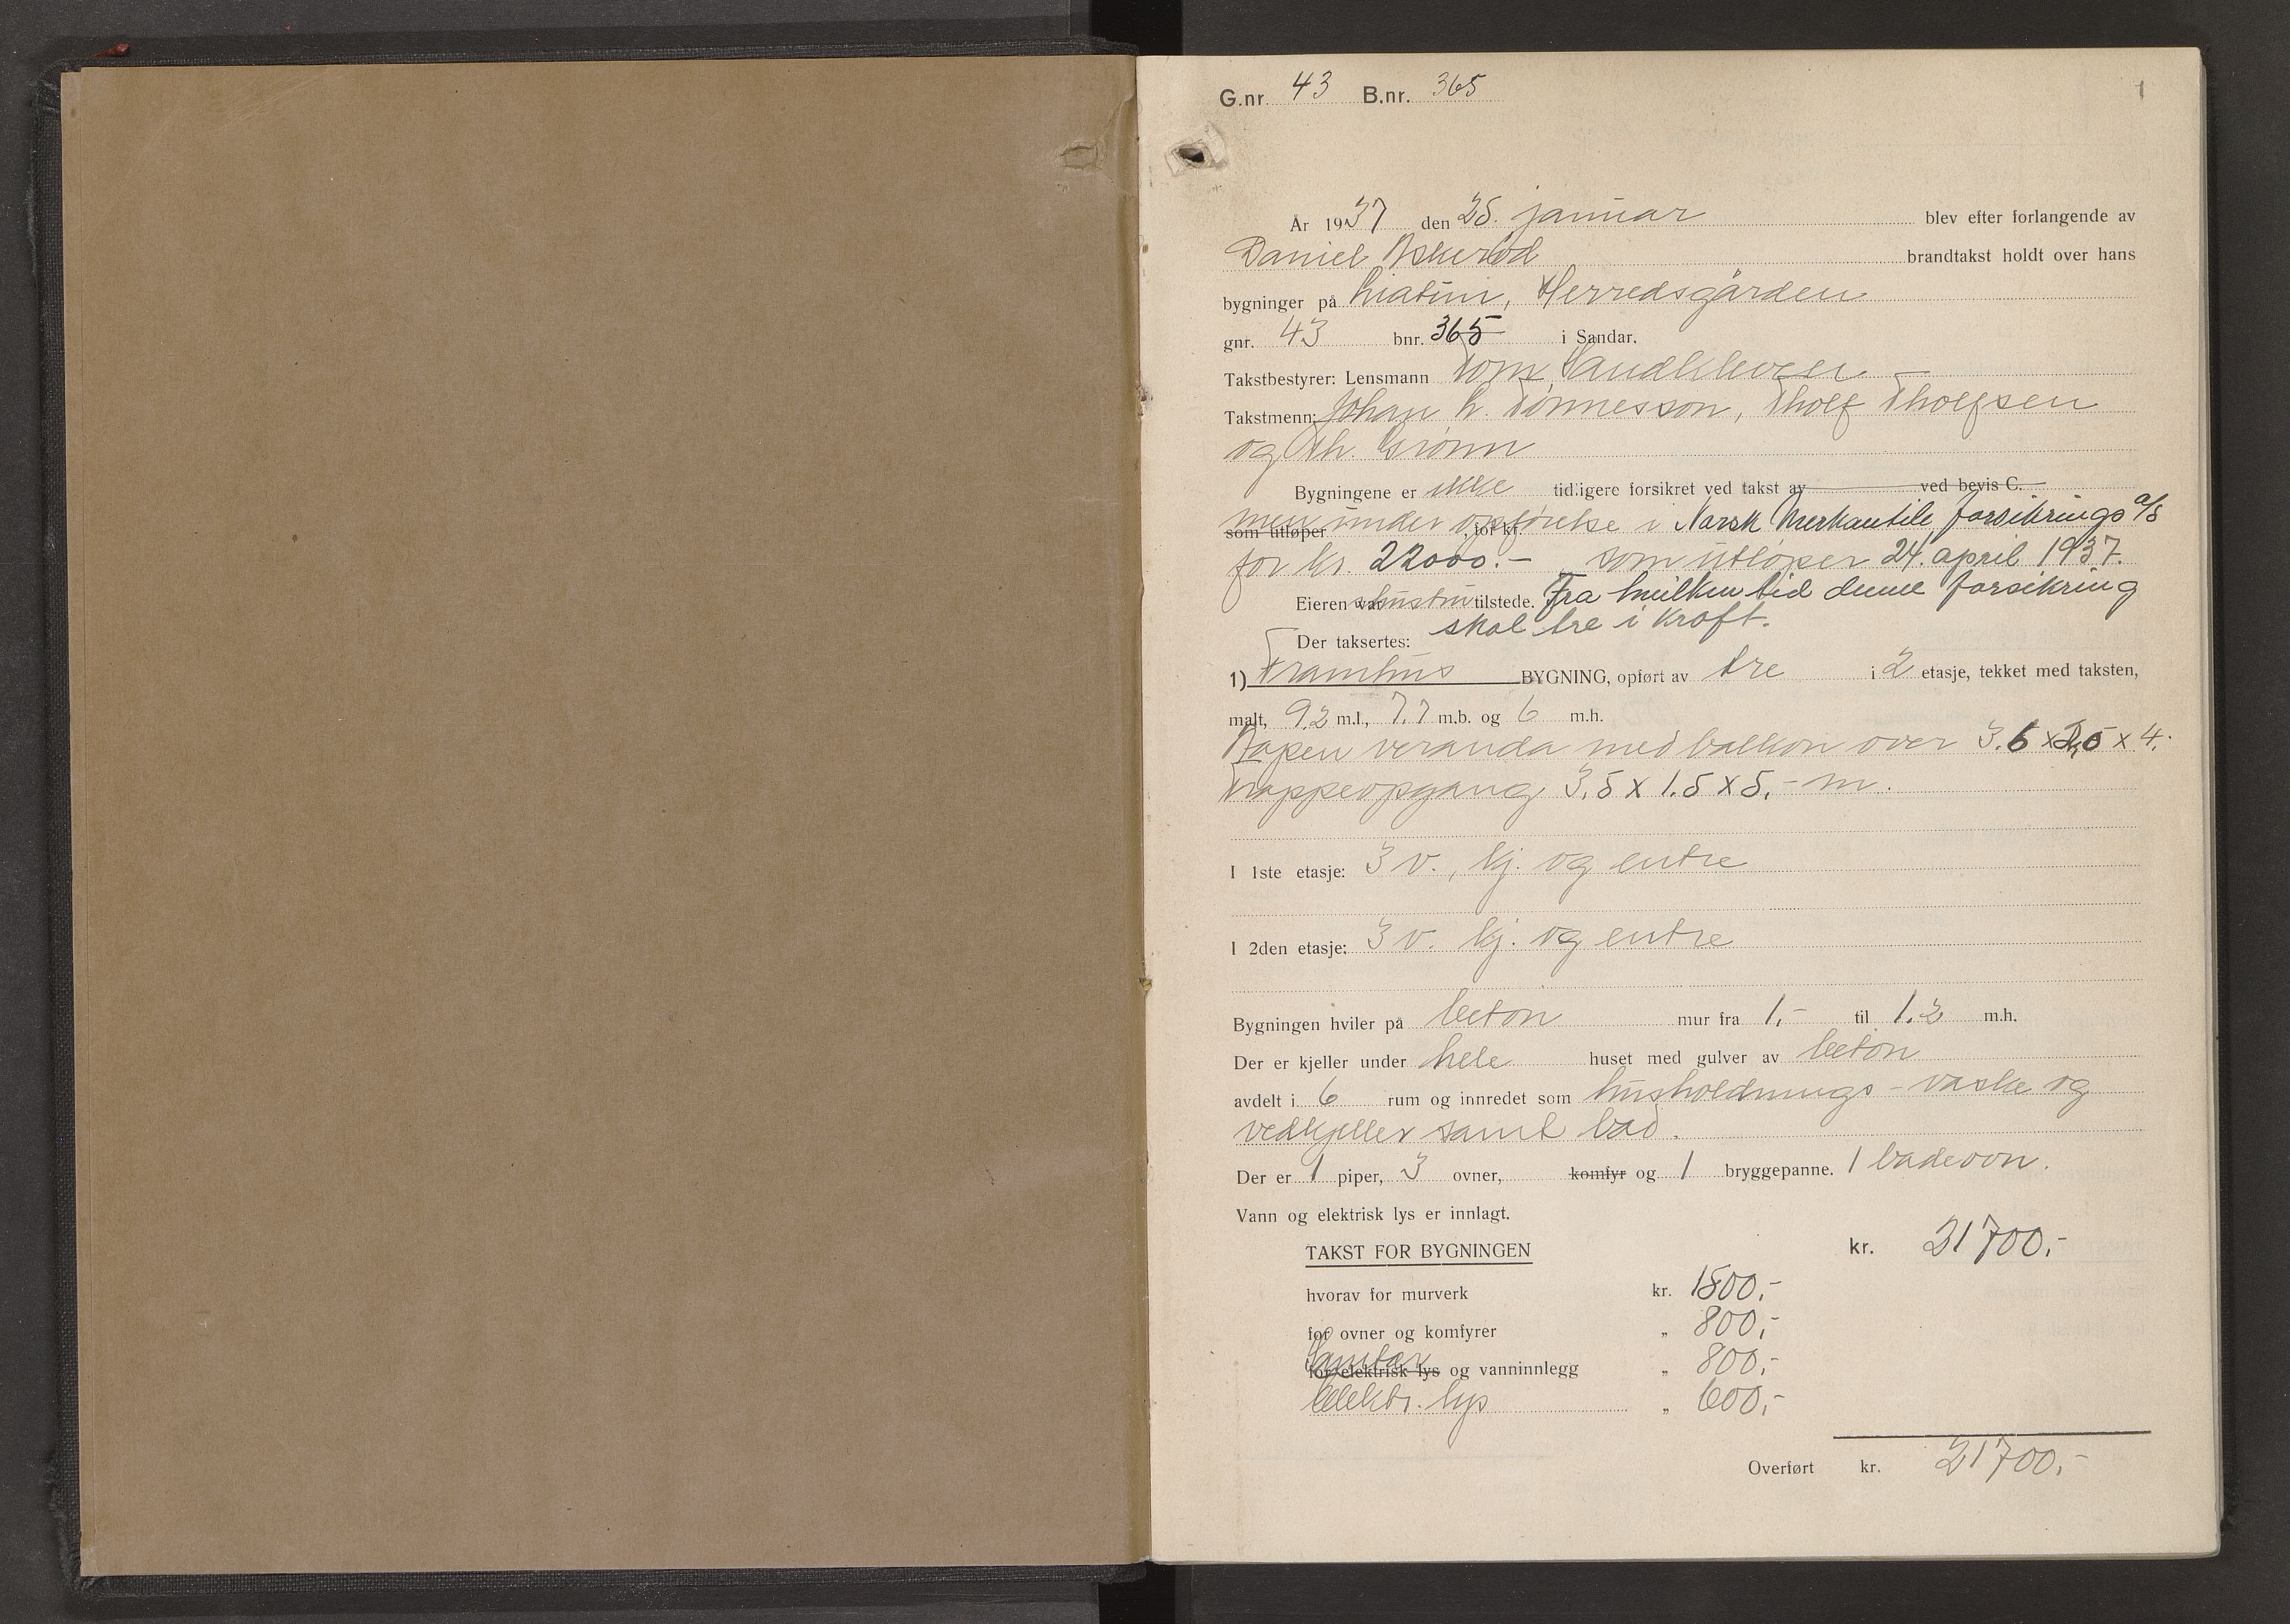 1
G.nr. 43 B.nr. 365
År 1937 den 25. januar blev efter forlangende av
Daniel Askerød brandtakst holdt over hans
bygninger på Liatun, Herredsgården
gnr. 43 bnr. 365 i Sandar.
Takstbestyrer: Lensmann Tom Sandkleven
Takstmenn: Johan L. Tønnesson, Tholf Tholfsen
og Th. Grønn
Bygningene er ikke tidligere forsikret ved takst av ved bevis C.
som utløper , for kr.
men under opførelse i Norsk Merkantile forsikrings a/s
for kr. 22000.- som utløper 24. april 1937.
Eieren var hustru tilstede. Fra hvilken tid denne forsikring
skal tre i kraft.
Der taksertes:
1) Framhus BYGNING, opført av tre i 2 etasje, tekket med taksten,
malt, 9.2 m.l., 7.7 m.b. og 6 m.h.
Aapen veranda med balkon over 3.6 x 2,5 x 4.
Trappeopgang 3.5 x 1.5 x 5.- m.
I 1ste etasje: 3 v., kj. og entre
I 2den etasje: 3 v. kj. og entre
Bygningen hviler på beton mur fra 1,- til 1.2 m.h.
Der er kjeller under hele huset med gulver av beton
avdelt i 6 rum og innredet som husholdnings- vaske og
vedkjeller samt bad.
Der er 1 piper, 3 ovner, komfyr og 1 bryggepanne. 1 badeovn.
Vann og elektrisk lys er innlagt.
TAKST FOR BYGNINGEN kr. 21700,-
hvorav for murverk kr. 1500,-
for ovner og komfyrer „ 800,-
Sanitær
for elektrisk lys og vanninnlegg „ 800,-
Elektr. lys „ 600,-
Overført kr. 21700,-